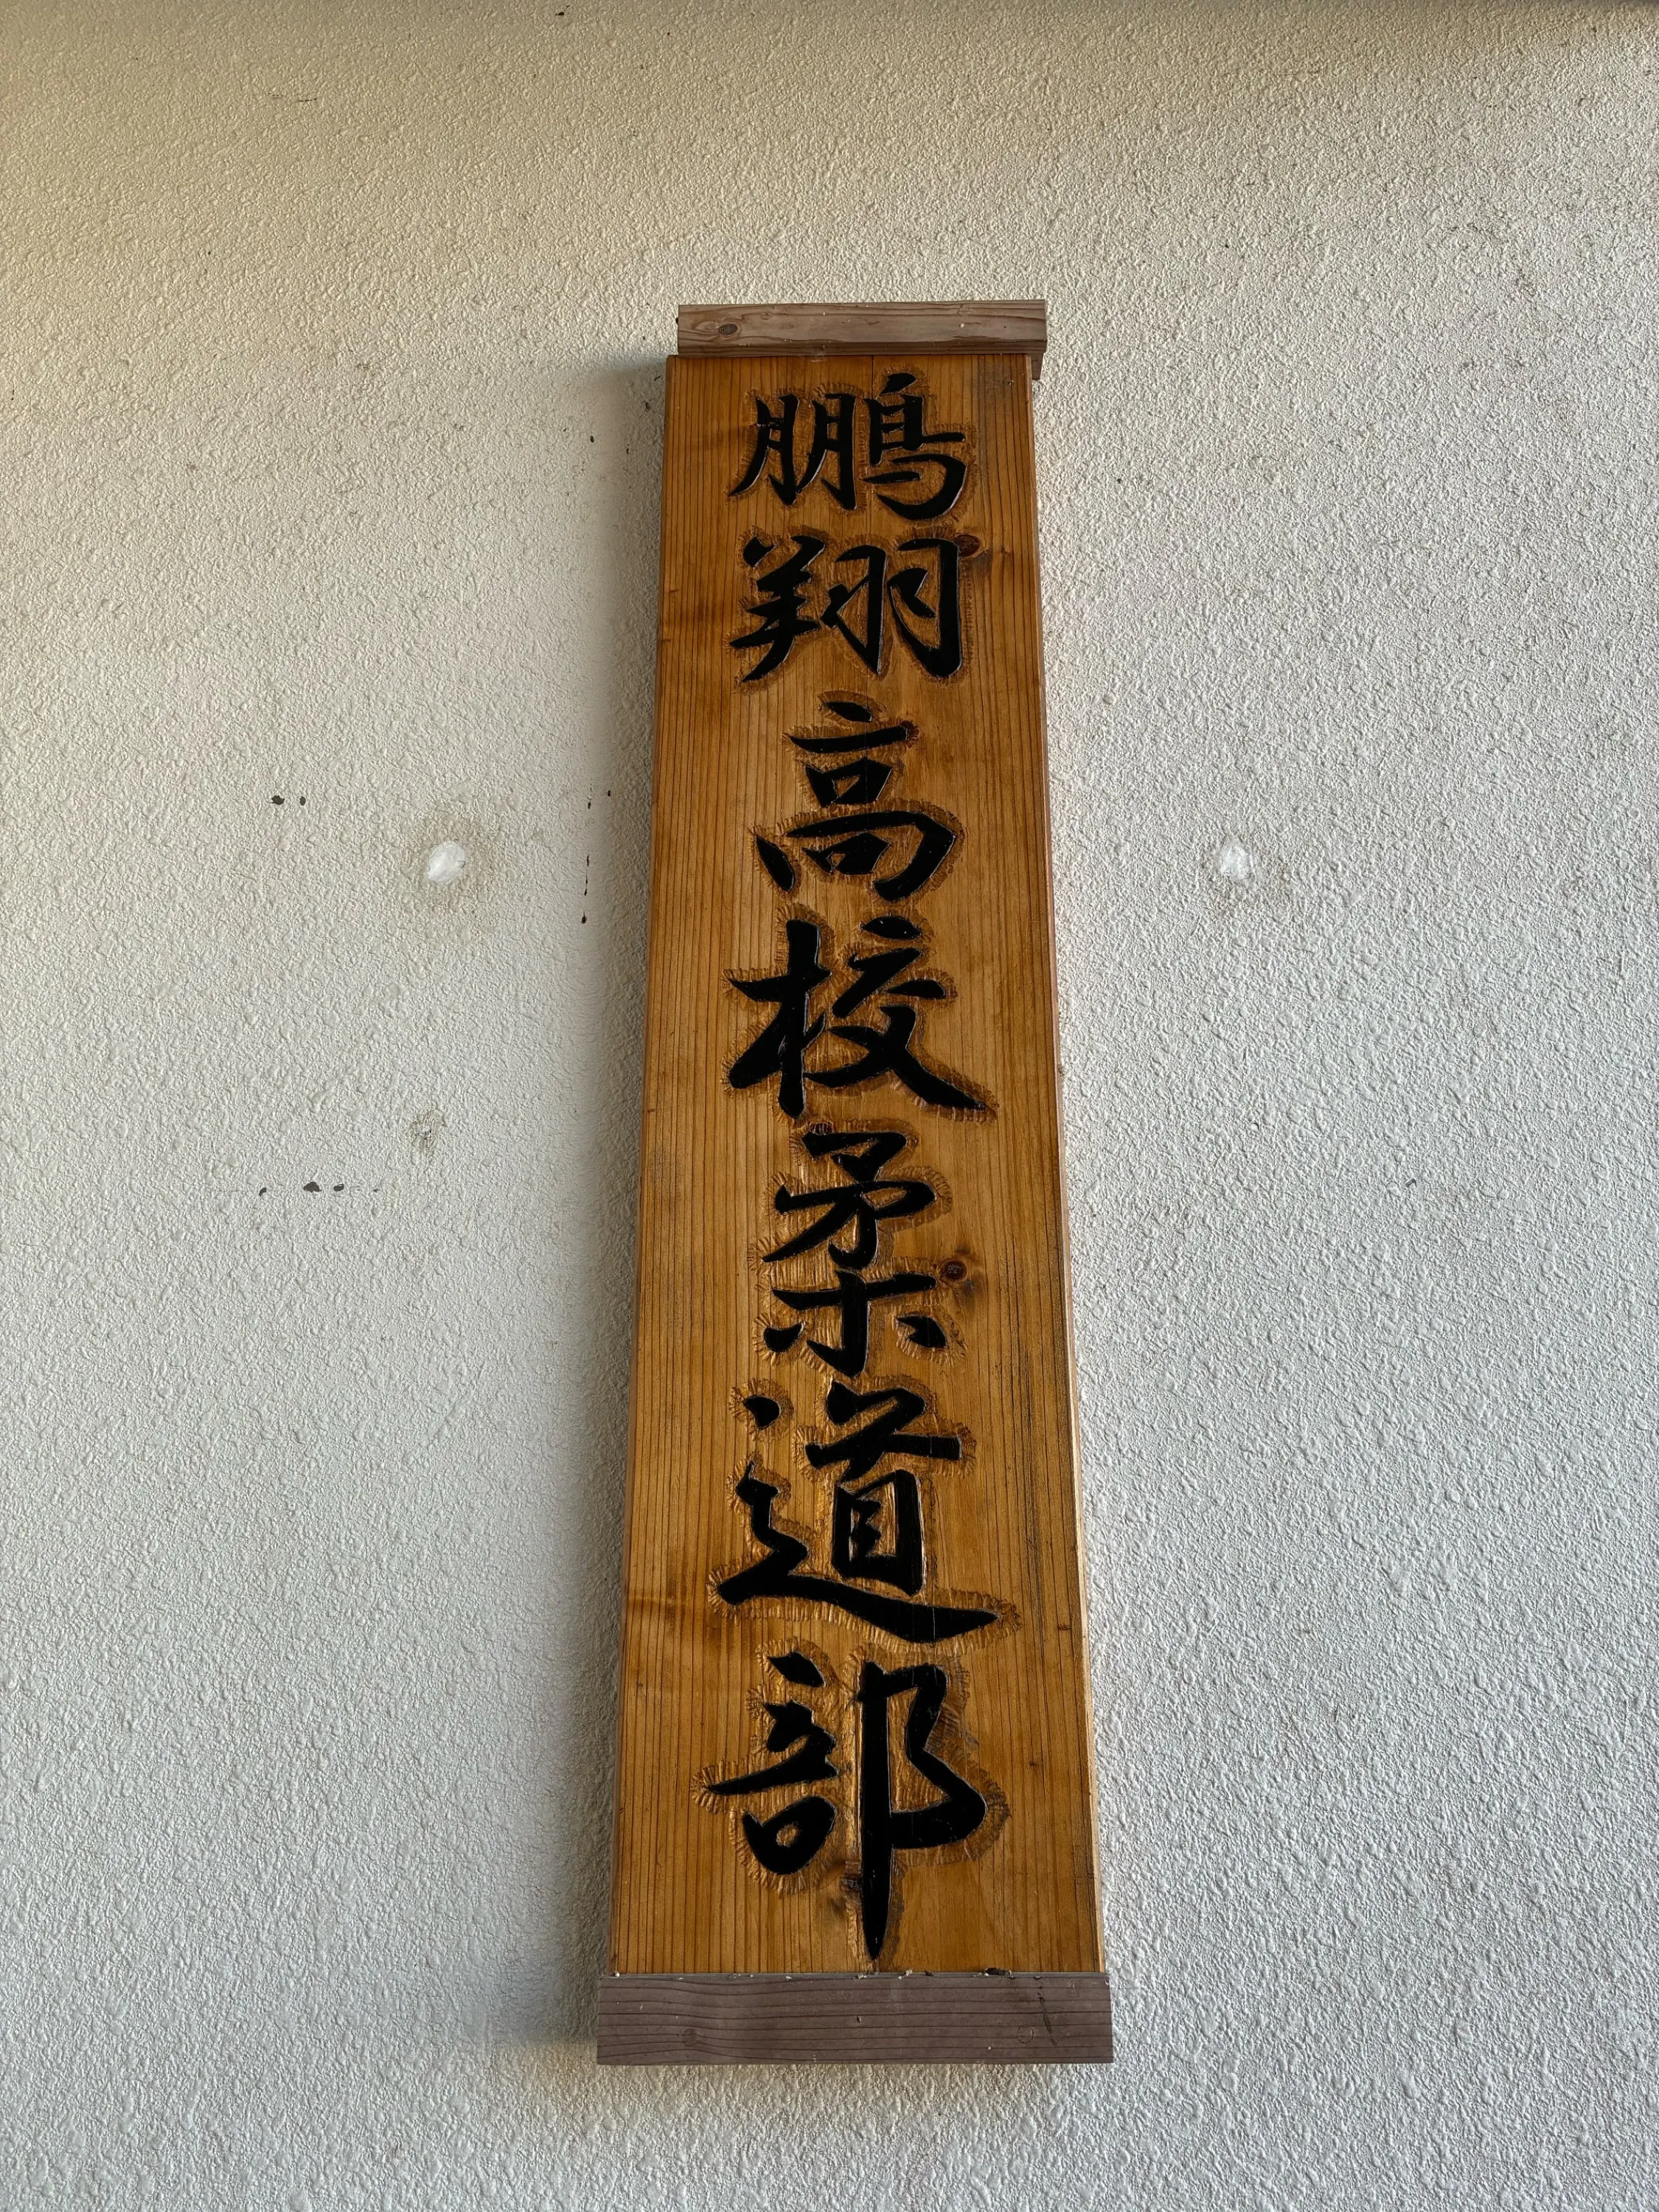 鵬翔高校柔道部